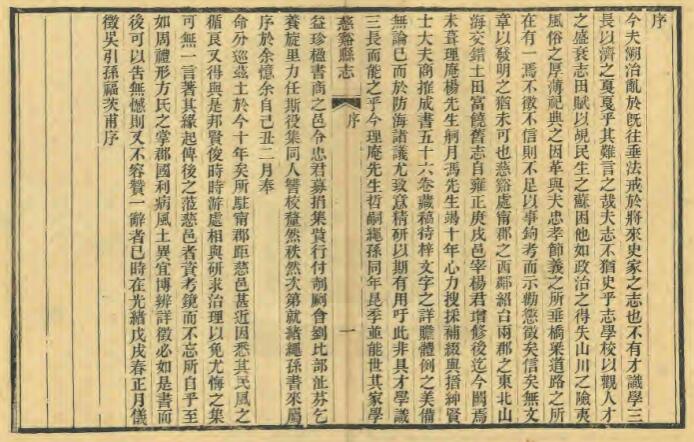 序
今夫溯治亂於旣往垂法戒於將來史家之志也不有才識學三
長以濟之戛戛乎其難言之哉夫志不猶史乎志學校以觀人才
之盛衰志田賦以覘民生之蘇困他如政治之得失山川之險夷
風俗之厚薄祀典之因革與夫忠孝節義之所垂橋梁道路之所
在有一焉不徵不信則不足以事鉤考而示勸懲徵矣信矣無文
章以發明之猶未可也慈谿處甯郡之西鄰紹台兩郡之東北山
海交錯土田富饒舊志自雍正庚戌邑宰楊君增修後迄今闕焉
未葺理庵楊先生舸月馮先生竭十年心力搜採補綴與搢紳賢
士大夫商搉成書五十六卷藏稿待梓文字之詳贍體例之美備
無論已而於防海諸議尤致意精研以期有用吁此非具才學識
三長而能之乎今理庵先生哲嗣繩孫同年是季並能世其家學
慈谿縣志
序
一
益珍楹書商之邑令忠君募捐集貲行付剞劂會劉比部沚芬乞
養旋里力任斯役集同人讐校釐然秩然次第就緒繩孫書來屬
序於余憶余自己丑二月奉
命分巡茲土於今十年矣所駐甯郡距慈邑甚近因悉其民風之
循良又得與是邦賢俊時時游處相與研求治理以免尤悔之集
可無一言著其緣起俾後之蒞慈邑者資考鏡而不忘所自乎至
如周禮形方氏之掌郡國利病風土異宜博辨詳徵必如是書而
後可以告無憾則又不容贊一辭者已時在光緒戊戌春正月儀
徵吳引孫福茨甫序